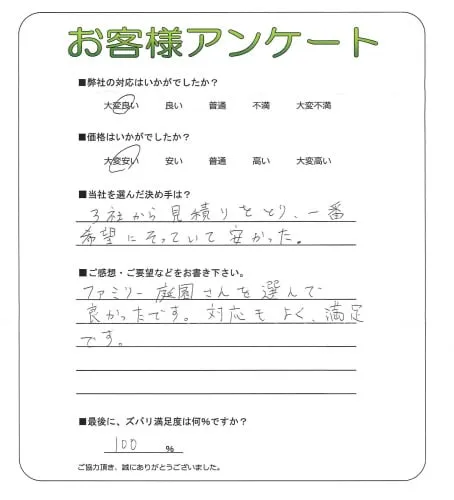 お客様アンケート
■弊社の対応はいかがでしたか?
大変良い 良い 普通 不満 大変不満
■価格はいかがでしたか?
大変安い 安い 普通 高い 大変高い
■当社を選んだ決め手は?
3社から見積りをとり、一番
希望にそっていて安かった。
■ご感想・ご要望などをお書き下さい。
ファミリー庭園さんを選んで
良かったです。対応もよく、満足
です。
■最後に、ズバリ満足度は何%ですか?
100 %
ご協力頂き、誠にありがとうございました。